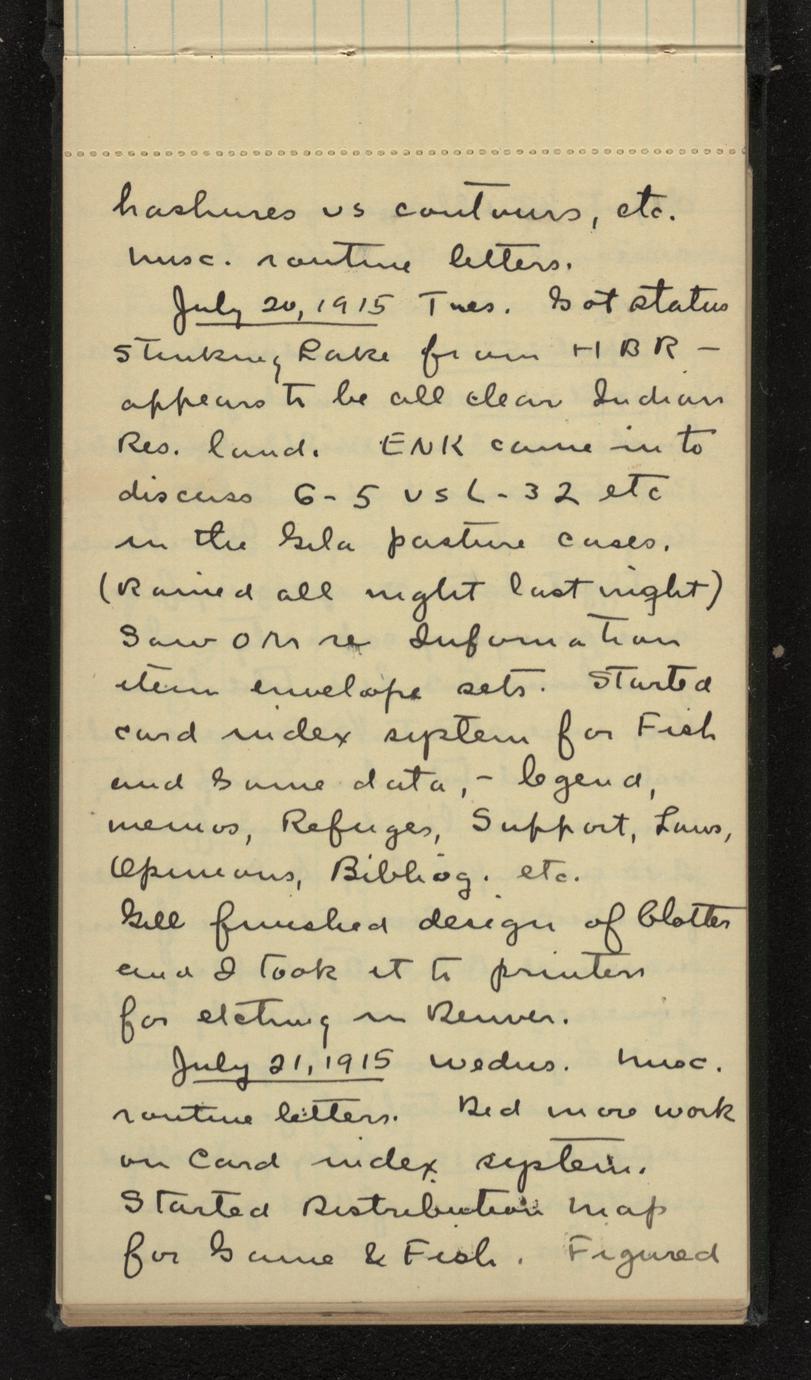 hashures vs contours, etc.
Misc. routine letters.
July 20, 1915 Tues. Got status
Stinking Lake from HBR —
appears to be all clear Indian
Res. land. ENK came in to
discuss G-5 vs L-32 etc
in the Gila pasture cases.
(Rained all night last night)
Saw OM re Information
item envelope sets. Started
card index system for Fish
and Game data, - legend,
memos, Refuges, Support, Laws,
Opinions, Bibliog. etc.
Gill finished design of blotter
and I took it to printers
for etching in Denver.
July 21, 1915 Wednes. Misc.
routine letters. Did more work
on card index system.
Started Distribution Map
for Game & Fish. Figured